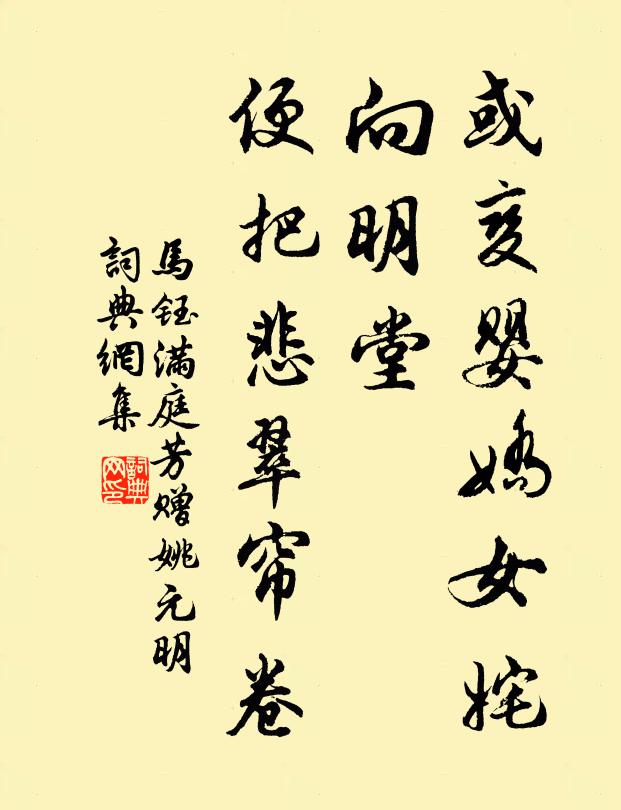 或变婴娇女姹
向明堂
便把悲翠帘卷
馬鈺满庭芳赠姚元明
詞典網集
詞典
网印